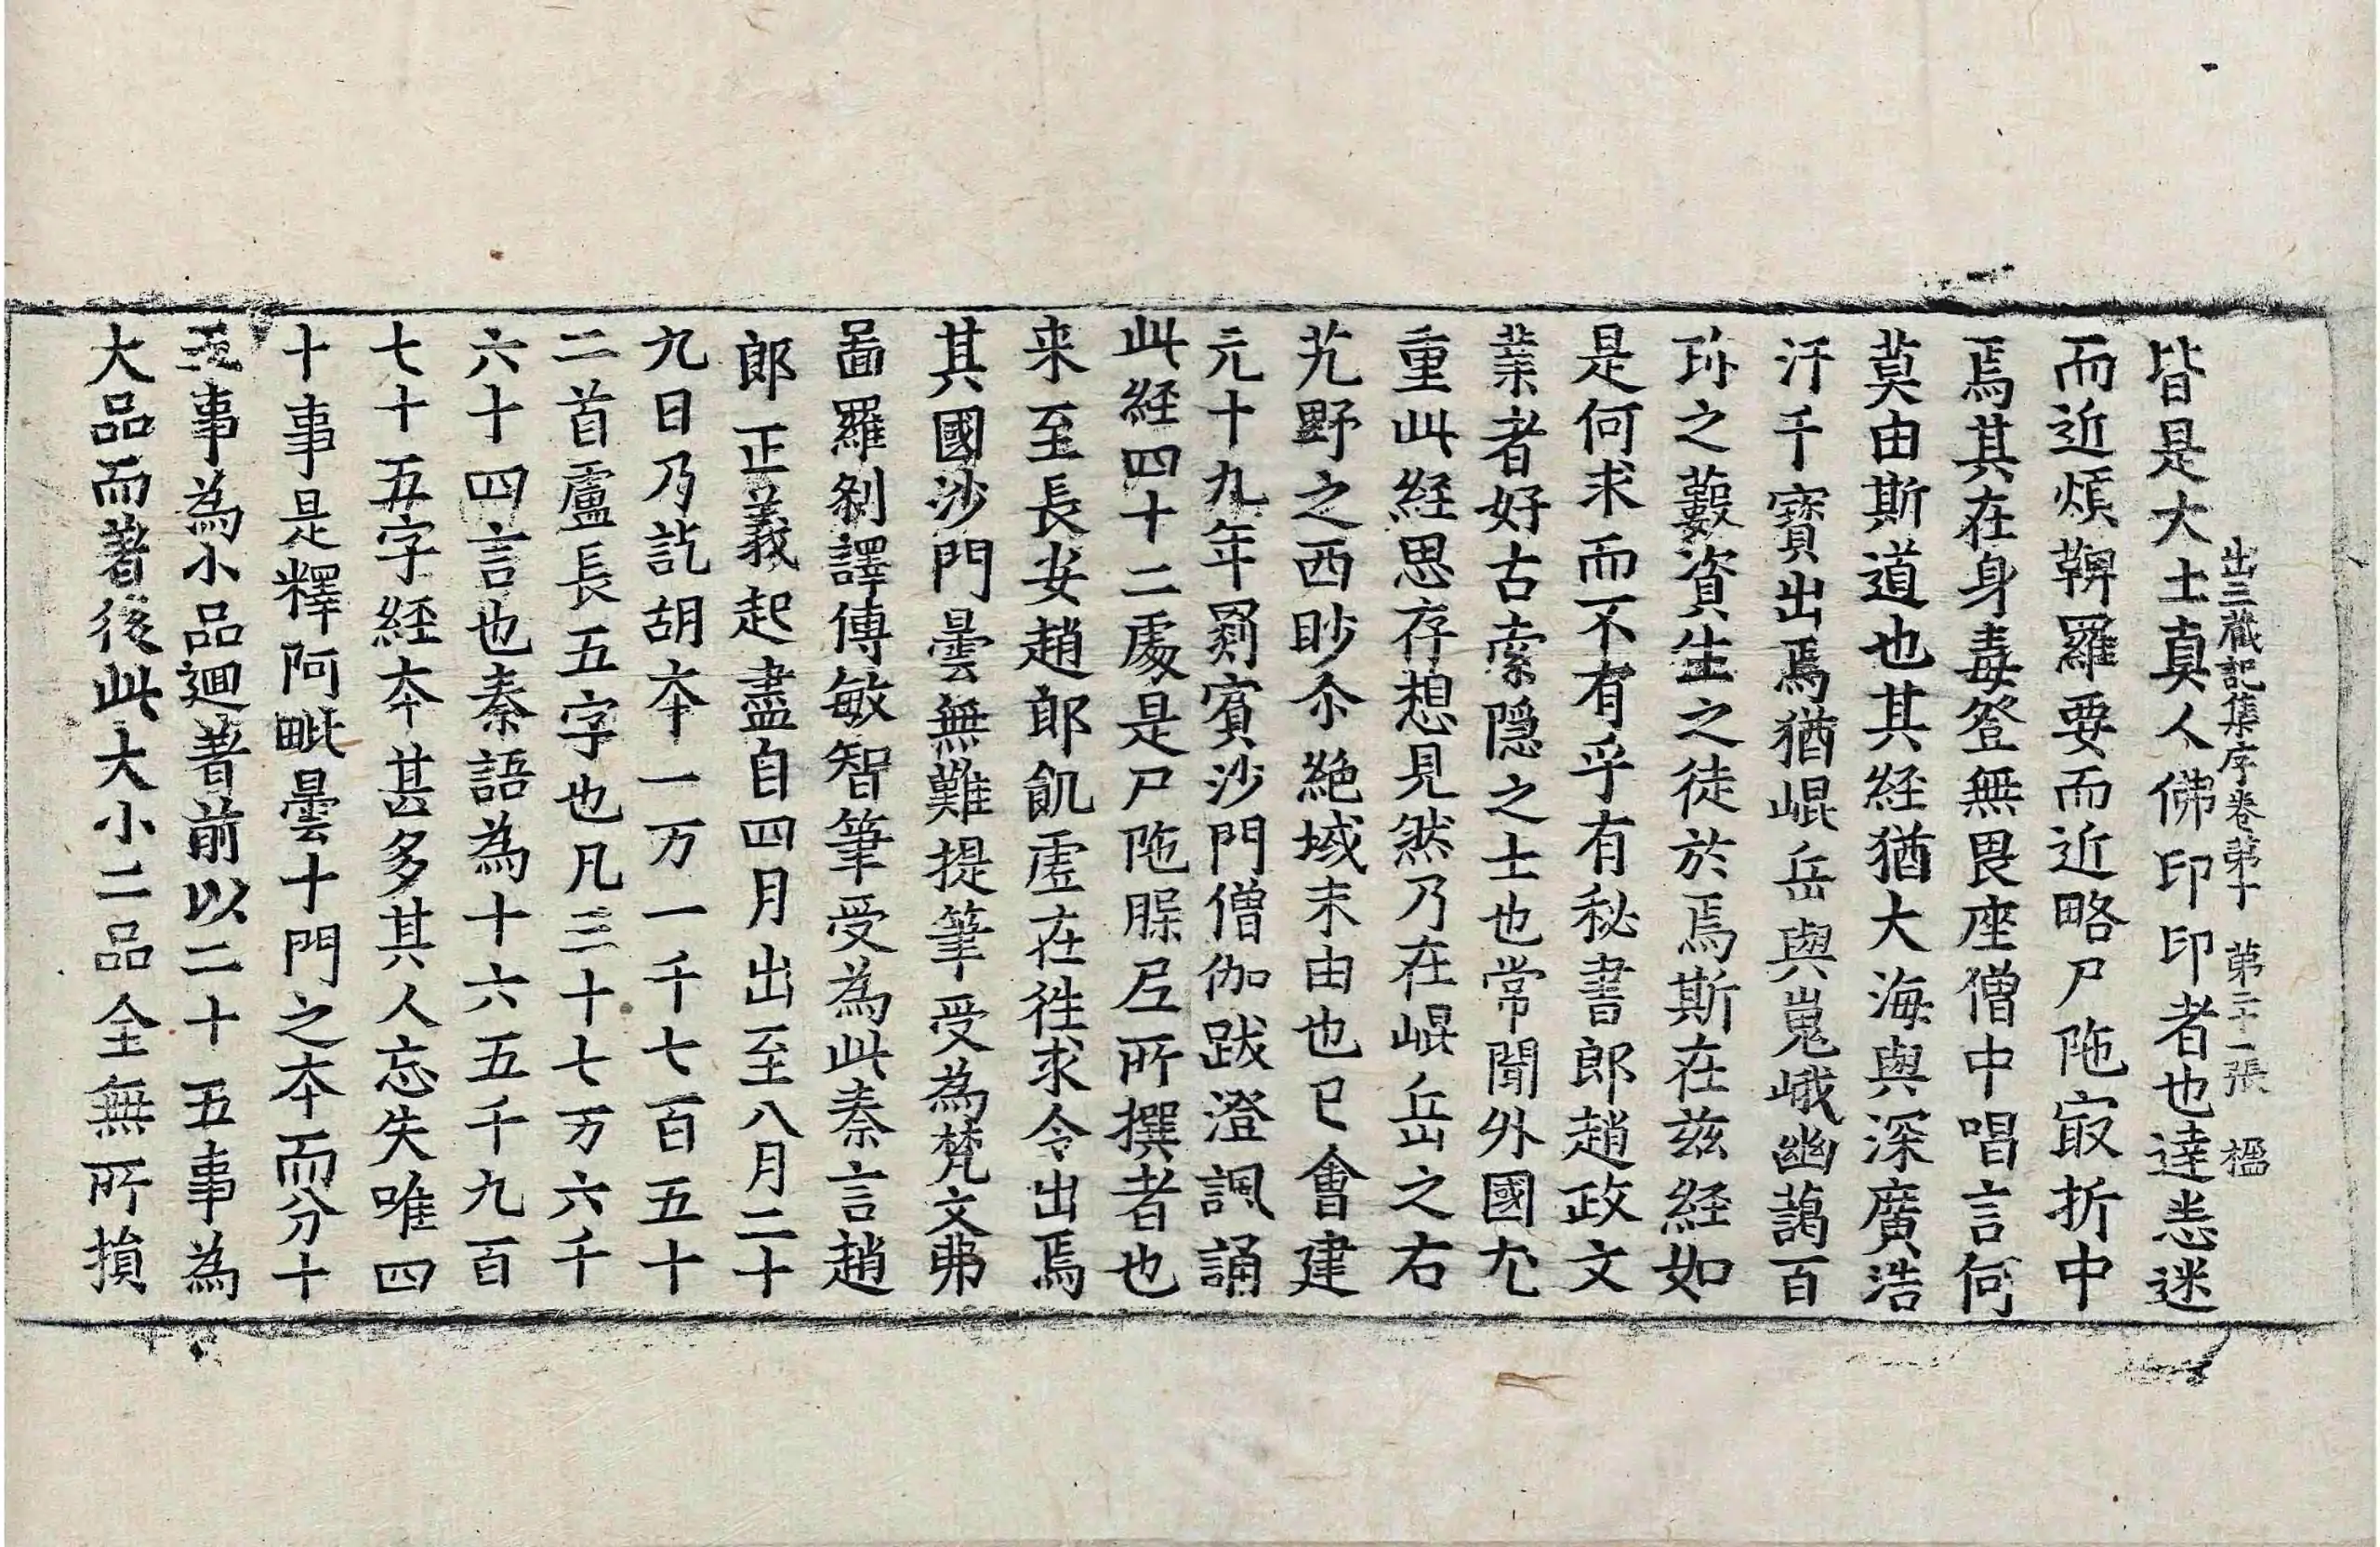 出三藏記集序卷第十　第二十一張　楹
皆是大士真人佛印印者也達悉迷
而近煩鞞羅要而近略尸陁㝡折中
焉其在身毒登無畏座僧中唱言何
莫由斯道也其経猶大海與深廣浩
汗千寶出焉猶崐岳與嵬峨幽藹百
珎之藪資生之徒於焉斯在兹経如
是何求而不有乎有秘書郎趙政文
業者好古索隠之士也常聞外國尢
重此経思存想見然乃在崐岳之右
艽野之西眇尒絶域末由也已會建
元十九年罽賓沙門僧伽跋澄諷誦
此経四十二處是尸陁䐗𡰱所撰者也
来至長安趙郎飢虚在往求令出焉
其國沙門曇無難提筆受為梵文弗
啚羅刹譯傳敏智筆受為此秦言趙
郎正義起盡自四月出至八月二十
九日乃訖胡夲一万一千七百五十
二首盧長五字也凡三十七万六千
六十四言也秦語為十六五千九百
七十五字経夲甚多其人忘失唯四
十事是釋阿毗曇十門之夲而分十
五事為小品迴著前以二十五事為
大品而著後此大小二品全無所損